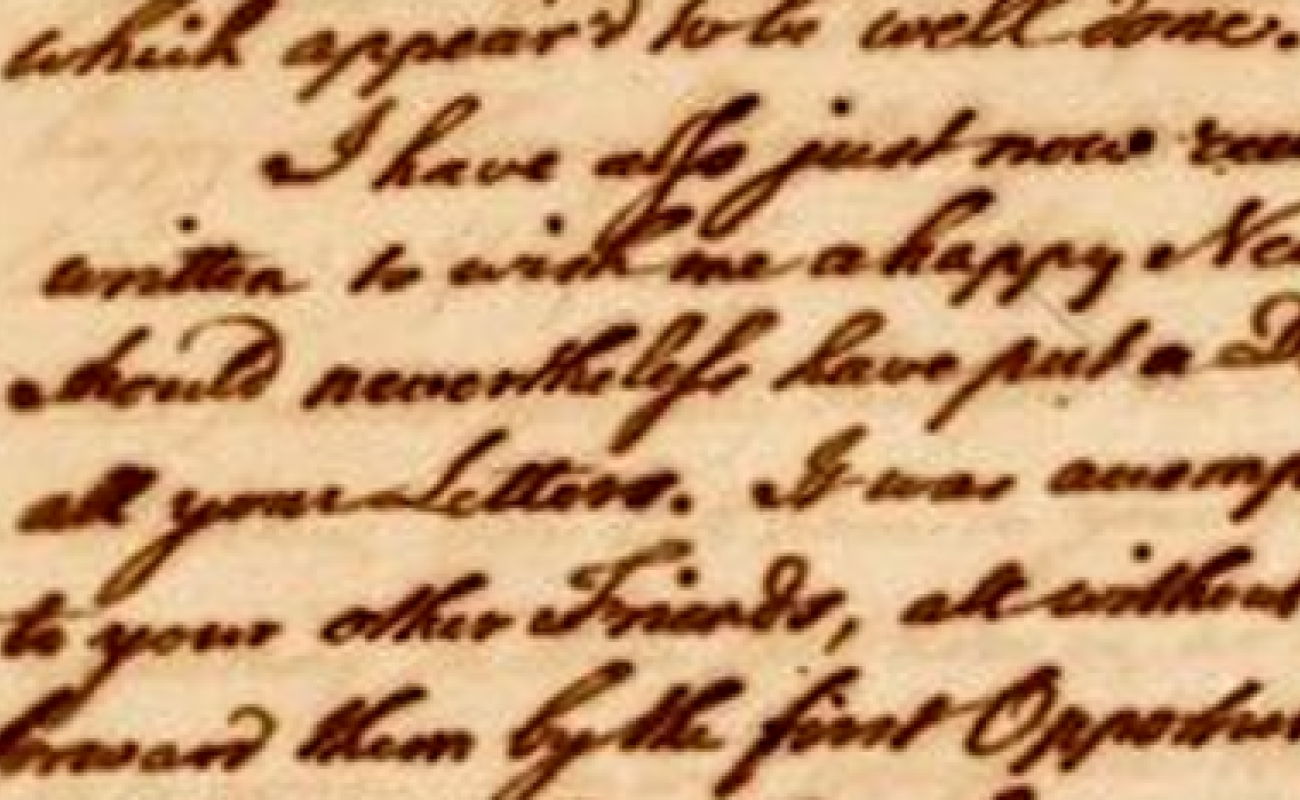 which appear'd to be well done.
I have also just now
written to wish me a happy
should nevertheless have put a
all your Letters. It was
to your other Friends, all without
forward them by the first